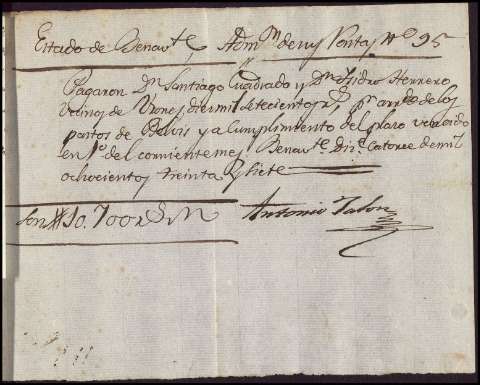 Estado de Benav.te Adm.on de sus Rentas N.o 95
Pagaron Dn. Santiago Cuadrado y Dn. Isidro Herrero
Vecinos de diez mil setecientos rs. pr. arrdo. de los
pastos de Belvis y a Cumplimiento del plazo vencido
en 1.o del corriente mes Benav.te Dic.e Catorce de mil
ochocientos treinta y siete
Son # 10.700 rs. Vn
Antonio Talon